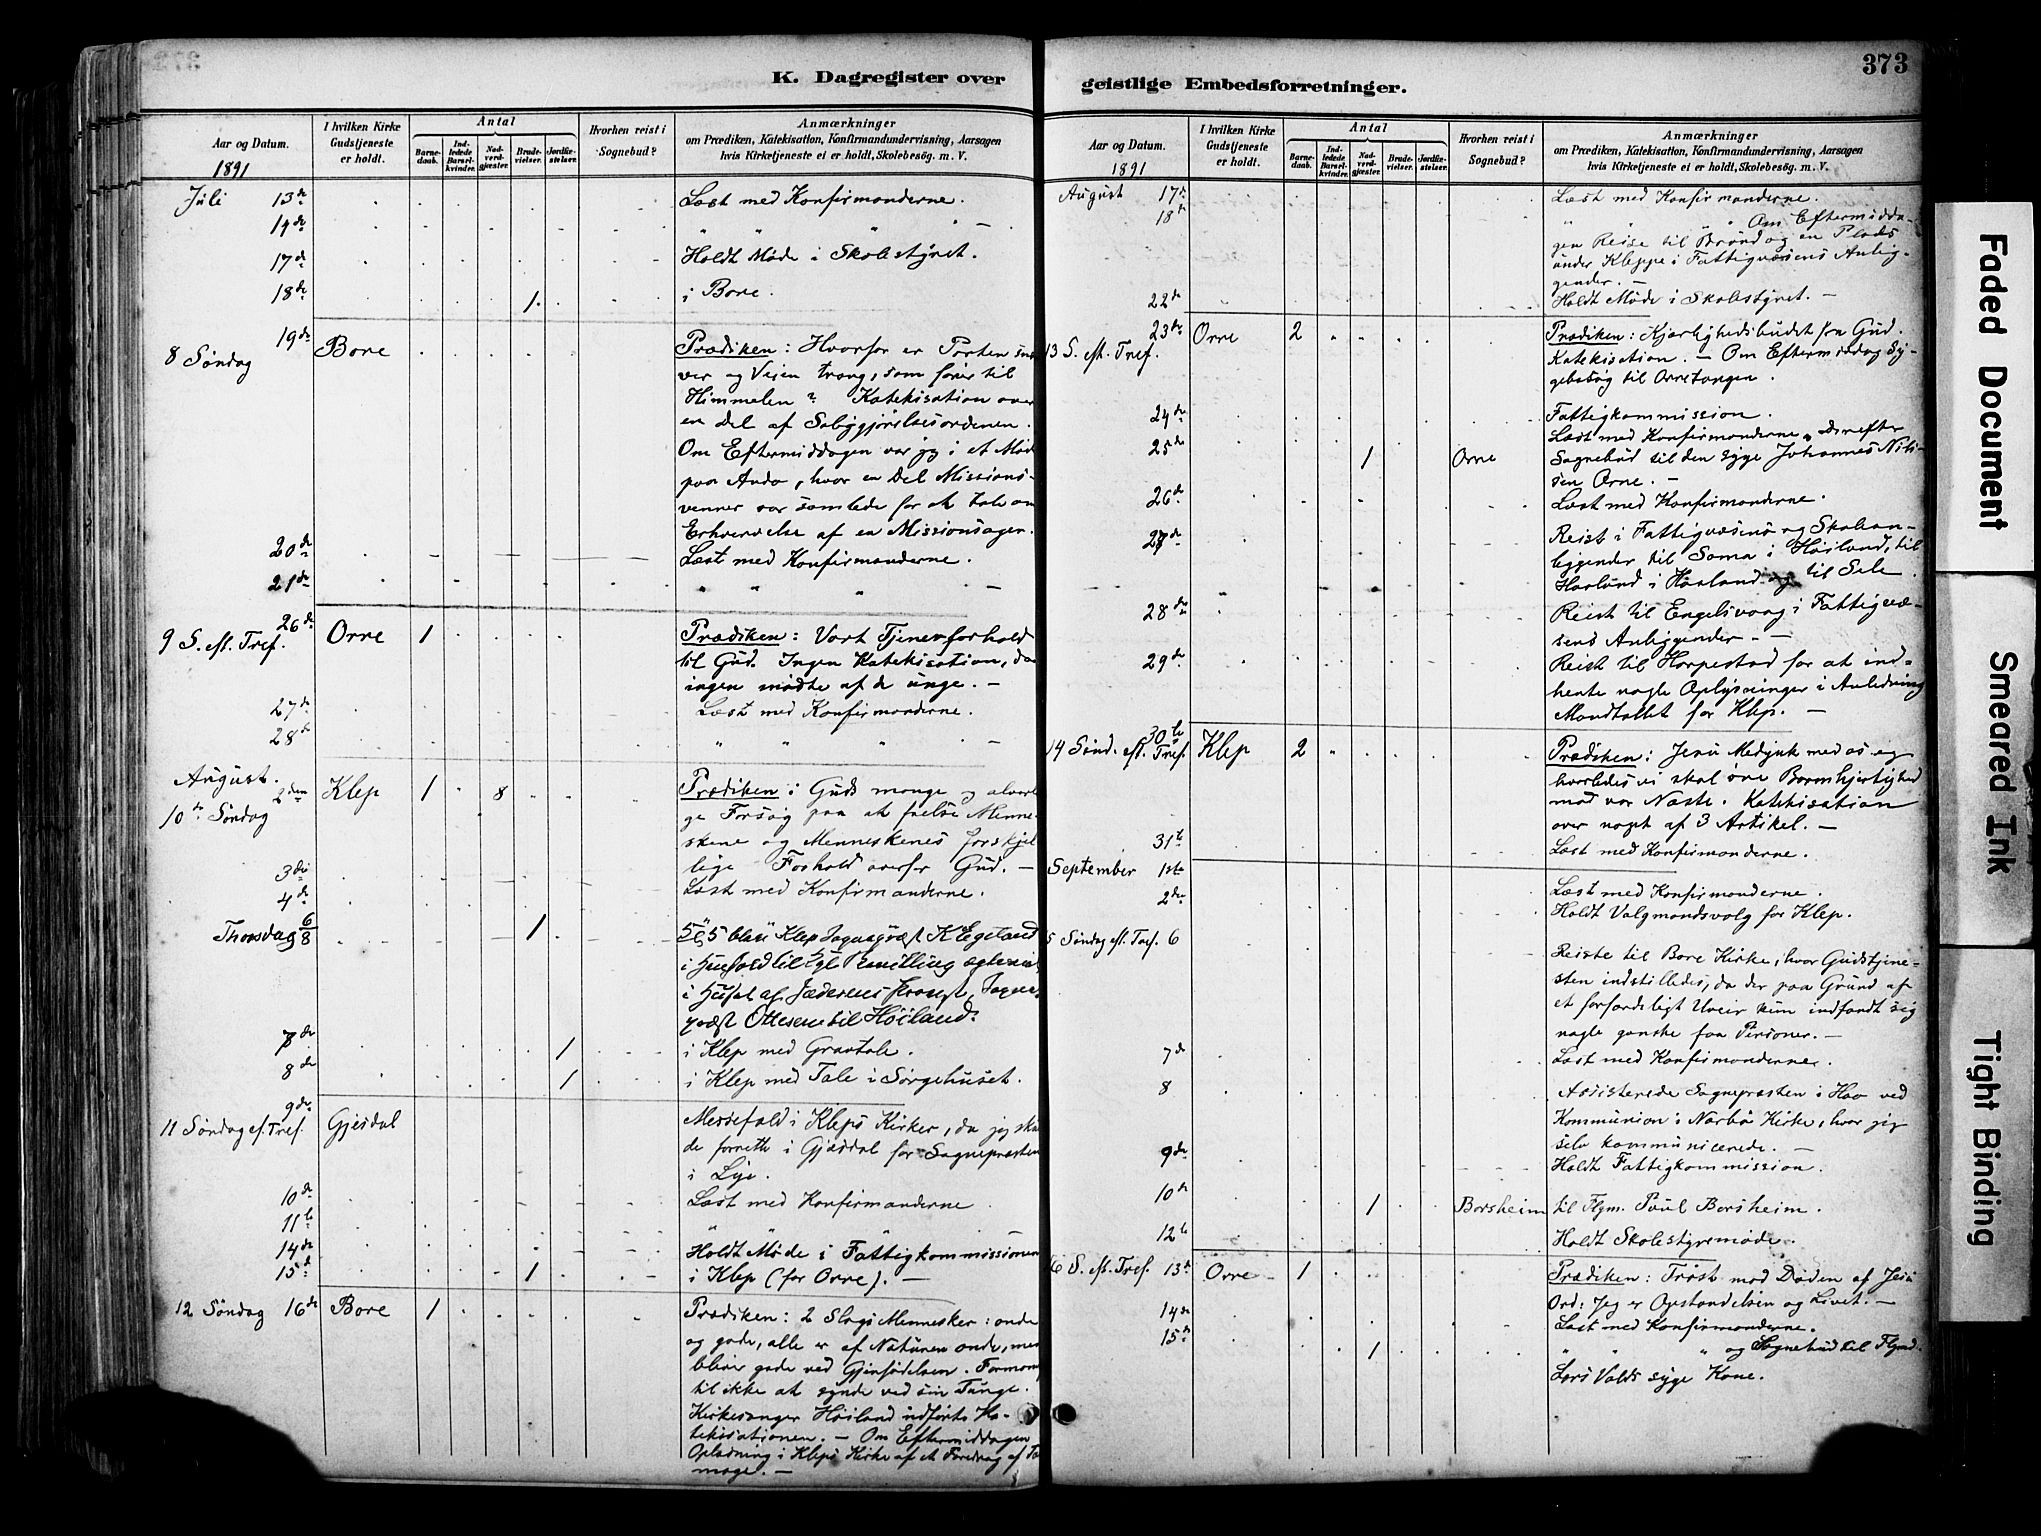 373
K. Dagregister over
Aar og Datum.
1891
I hvilken Kirke Gudstjeneste er holdt.
Antal
Barnedaab.
Indledede Barselkvinder.
Nadverdgjester.
Brudevielser.
Jordfæstelser.
Hvorhen reist i Sognebud?
Anmærkninger
om Prædiken, Katekisation, Konfirmandundervisning, Aarsagen
hvis Kirketjeneste ei er holdt, Skolebesøg. m. V.
Juli 13de Læst med Konfirmanderne.
14de " " " —
17de Holdt Møde i Skolestyret.
18de 1. i Bore.
19de
8 Søndag Bore Prædiken: Hvorfor er Porten snæ-
ver og Veien trang, som fører til
Himmelen? Katekisation over
en Del af Saliggjørelsesordenen.
Om Eftermiddagen var jeg i et Møde
paa Anda, hvor en Del Missions-
venner var samlede for at tale om
Erhvervelse af en Missionsager.
20de Læst med Konfirmanderne.
21de " " " —
26de
9 S. eft. Tref. Orre 1 Prædiken: Vort Tjenerforhold
til Gud. Ingen Katekisation, da
ingen mødte af de unge. —
27de Læst med Konfirmanderne.
28de " " " —
August.
2den Klep 1 8 Prædiken: Guds mange og alvorli-
10de Søndag ge Forsøg paa at frelse Menne-
skene og Menneskenes forskjel-
lige Forhold overfor Gud. —
3die Læst med Konfirmanderne.
4de
Thorsdag 6/8 1
i Høiland.
7de 1 i Klep med Gravtale.
8de 1 i Klep med Tale i Sørgehuset.
9de
11 Søndag ef. Tref. Gjesdal Messefald i Kleps Kirker, da jeg skul-
de forrette i Gjesdal for Sognepræsten
i Lye.
10de Læst med Konfirmanderne
11te " " " —
14de Holdt Møde i Fattigkommissionen
15de 1 i Klep (for Orre). —
12 Søndag 16de Bore 1 Prædiken: 2 Slags Mennesker: onde
og gode, alle er af Naturen onde, men
bliver gode ved Gjenfødelsen. Formaning
til ikke at synde ved sin Tunge.
Kirkesanger Høiland udførte Ka-
tekisationen. — Om Eftermiddagen
Oplæsning i Kleps Kirke af et Foredrag af
geistlige Embedsforretninger.
Aar og Datum.
1891
I hvilken Kirke Gudstjeneste er holdt.
Antal
Barnedaab.
Indledede Barselkvinder.
Nadverdgjester.
Brudevielser.
Jordfæstelser.
Hvorhen reist i Sognebud?
Anmærkninger
om Prædiken, Katekisation, Konfirmandundervisning, Aarsagen
hvis Kirketjeneste ei er holdt, Skolebesøg. m. V.
August 17de Læst med Konfirmanderne.
18de " " Om Eftermidda-
gen Reise til Brønd og en Plads
under Kleppe i Fattigvæsens Anlig-
gender. —
22de Holdt Møde i Skolestyret. —
23de Orre 2 Prædiken: Kjærlighedsbudet fra Gud.
13 S. eft. Tref. Katekisation. — Om Eftermiddag Sy-
gebesøg til Orretangen.
24de Fattigkommission.
Læst med Konfirmanderne, derefter
25de 1 Orre Sognebud til den syge Johannes Nils-
sen Orre. —
26de Læst med Konfirmanderne.
27de Reist i Fattigvæsens og Skolean-
liggender til Soma i Høiland, til
Haaland i Høiland og til Sele.
28de Reist til Engelsvaag i Fattigvæ-
sens Anliggender. —
29de Reist til Horpestad for at ind-
hente nogle Oplysninger i Anledning
Mandtallet for Klep. —
30te
14 Sønd. eft. Tref. Klep 2 Prædiken: Jesu Medynk med os og
hvorledes vi skal øve Barmhjertighed
mod vor Næste. Katekisation
over noget af 3 Artikel. —
31te Læst med Konfirmanderne.
September 1ste Læst med Konfirmanderne.
2den Holdt Valgmandsvalg for Klep.
5 Søndag eft. Tref. 6 Reiste til Bore Kirke, hvor Gudstjene-
sten indstilledes, da der paa Grund af
et forfærdeligt Uveir kun indfandt sig
nogle ganske faa Personer. —
7de Læst med Konfirmanderne.
8 Assisterede Sognepræsten i Haa ved
Kommunion i Nærbø Kirke, hvor jeg
selv kommunicerede. —
9de Holdt Fattigkommission.
10de 1 Borsheim til Flgm. Paul Borsheim.
12te Holdt Skolestyremøde.
6 S. eft. Tref. 13de Orre 1 Prædiken: Trøst mod Døden af Jesu
Ord: Jeg er Opstandelsen og Livet. —
14de Læst med Konfirmanderne.
15de 1 " " " og Sognebud til Flgmd.
Lars Valds syge Kone.
Faded Document
Smeared Ink
Tight Binding